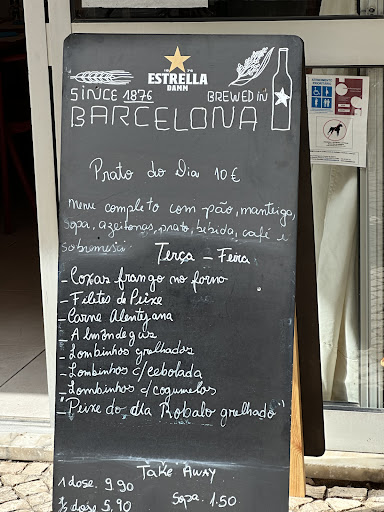 ESTRELLA
DAMM
SINCE 1876 BREWED IN
BARCELONA
Prato do Dia 10€
Menu completo com pão, manteiga,
sopa, azeitonas, prato, bebida, café e
sobremesa
Terça - Feira
- Coxas frango no forno
- Filetes de Peixe
- Carne Alentejana
- Almôndegas
- Lombinhos grelhados
- Lombinhos c/cebolada
- Lombinhos c/cogumelos
"Peixe do dia Robalo grelhado"
TAKE AWAY
1 dose. 9.90
1/2 dose 5,90
Sopa. 1.50